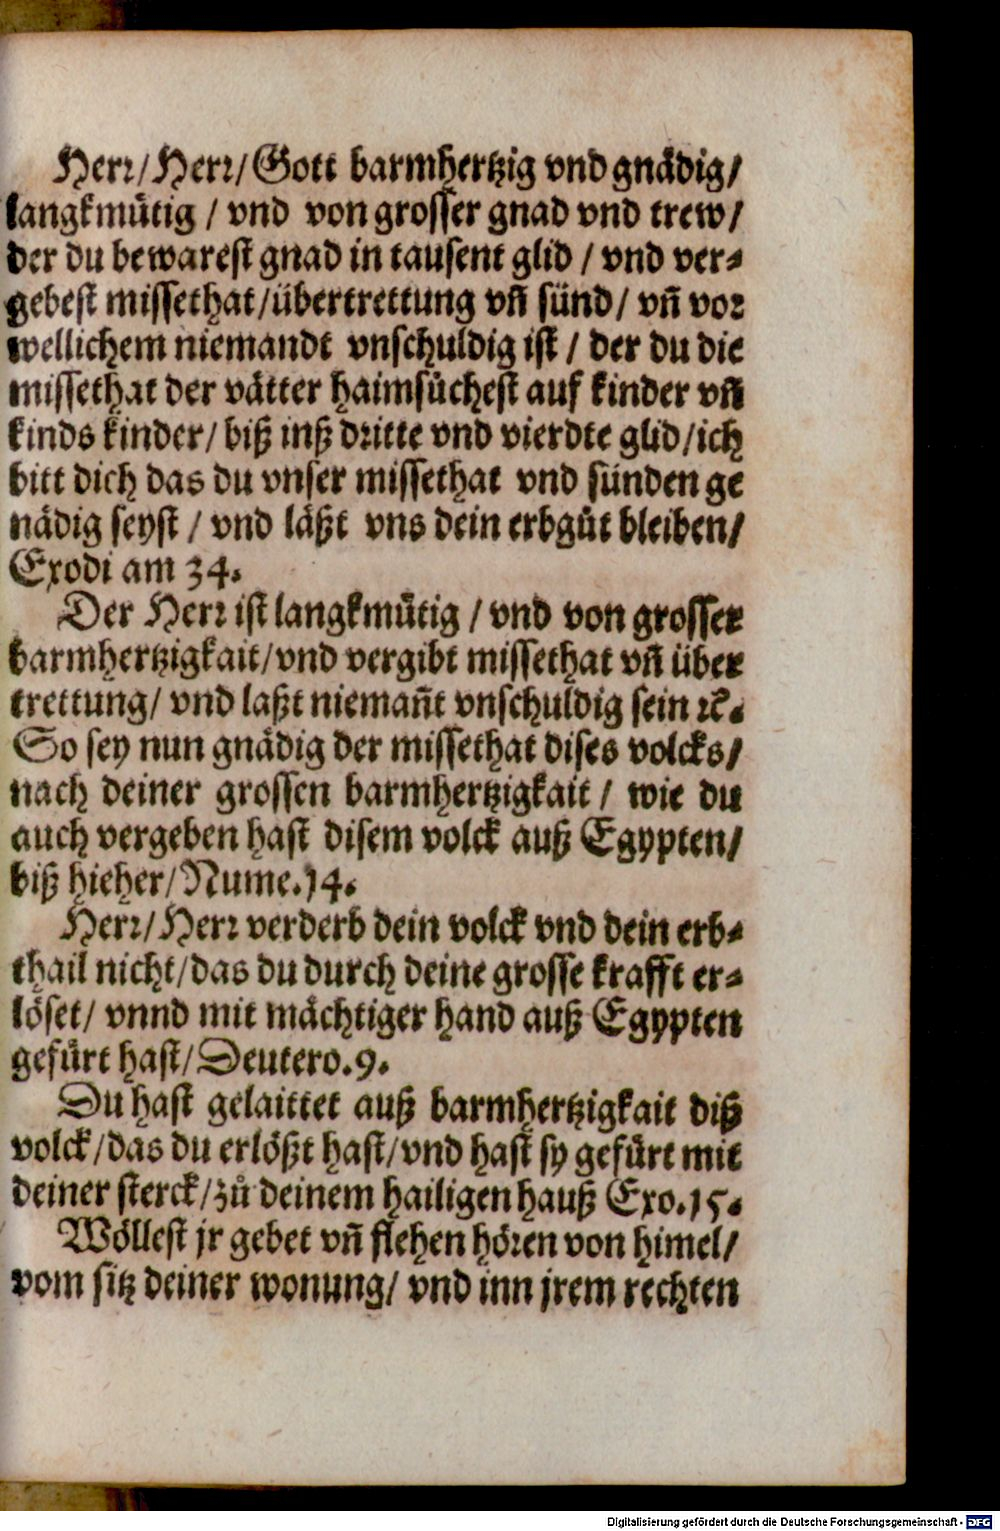 Herr/Herr/Gott barmhertzig vnd gnädig/
langkmütig / vnd von grosser gnad vnd trew/
der du bewarest gnad in tausent glid / vnd ver⸗
gebest missethat/übertrettung vñ sünd/ vñ vor
wellichem niemandt vnschuldig ist / der du die
missethat der vätter haimsuͤchest auf kinder vñ
kinds kinder/ biß inß dritte vnd vierdte glid/ich
bitt dich das du vnser missethat vnd sünden ge
nädig seyst / vnd läßt vns dein erbguͤt bleiben/
Exodi am 34.
Der Herr ist langkmütig / vnd von grosser
barmhertzigkait/vnd vergibt missethat vñ über
trettung/ vnd laßt niemañt vnschuldig sein ꝛc.
So sey nun gnädig der missethat dises volcks/
nach deiner grossen barmhertzigkait / wie du
auch vergeben hast disem volck auß Egypten/
biß hieher/Nume.14.
Herr/Herr verderb dein volck vnd dein erb⸗
thail nicht/das du durch deine grosse krafft er⸗
löset/ vnnd mit mächtiger hand auß Egypten
gefürt hast/Deutero.9.
Du hast gelaittet auß barmhertzigkait diß
volck/das du erlößt hast/vnd hast sy gefürt mit
deiner sterck/zů deinem hailigen hauß Exo.15.
Wöllest jr gebet vñ flehen hören von himel/
vom sitz deiner wonung/ vnd inn jrem rechten
Digitalisierung gefördert durch die Deutsche Forschungsgemeinschaft - DFG